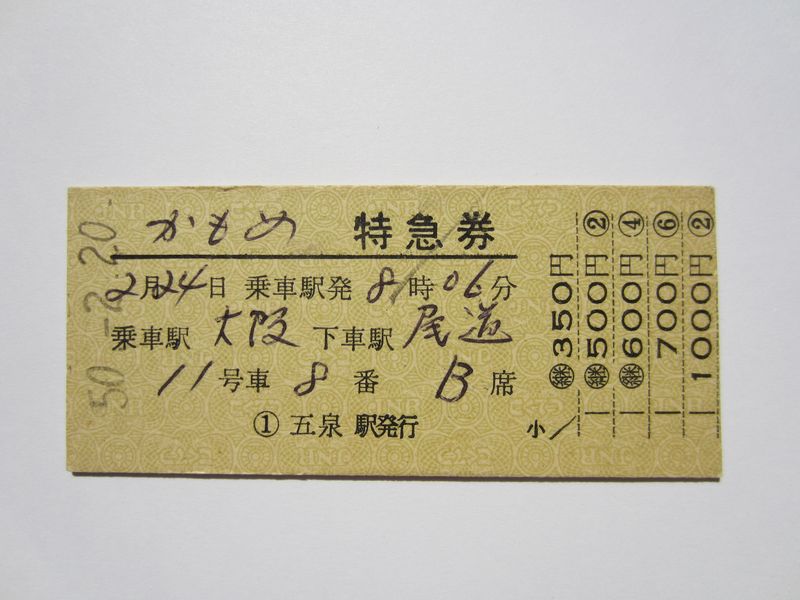 かもめ 特急券
2月24日 乗車駅発 8時06分
乗車駅 大阪 下車駅 尾道
11号車 8番 B席
① 五泉 駅発行
小
50.-2.20.
350円
500円 ②
600円 ④
700円 ⑥
1000円 ②